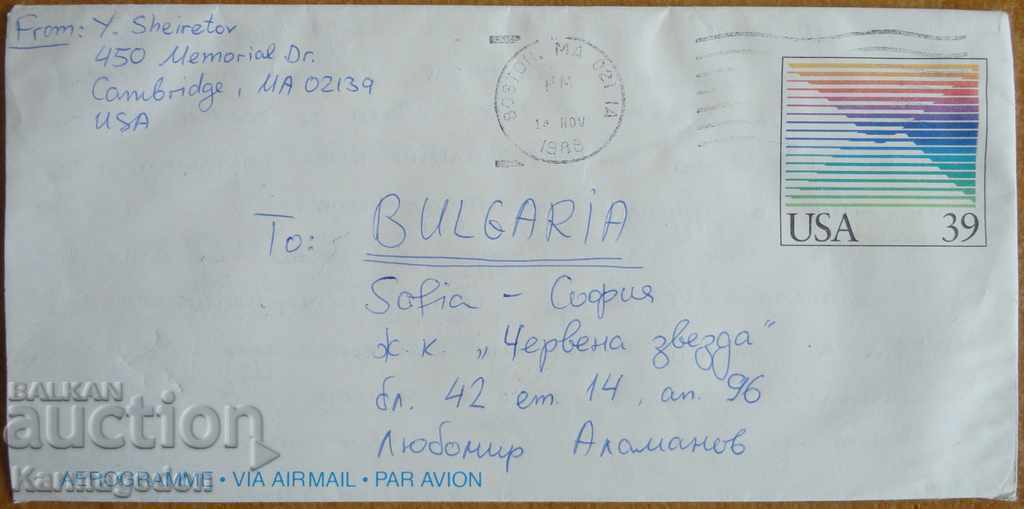 From: Y. Sheiretov
450 Memorial Dr.
Cambridge, MA 02139
USA
BOSTON, MA 021 1A
PM
NOV
USA 39
To: BULGARIA
Sofia - София
ж.к. „Червена звезда“
бл. 42 ет. 14, ап. 96
Любомир Аламанов
BALKAN
auction
Karmagedon
AEROGRAMME • VIA AIRMAIL • PAR AVION